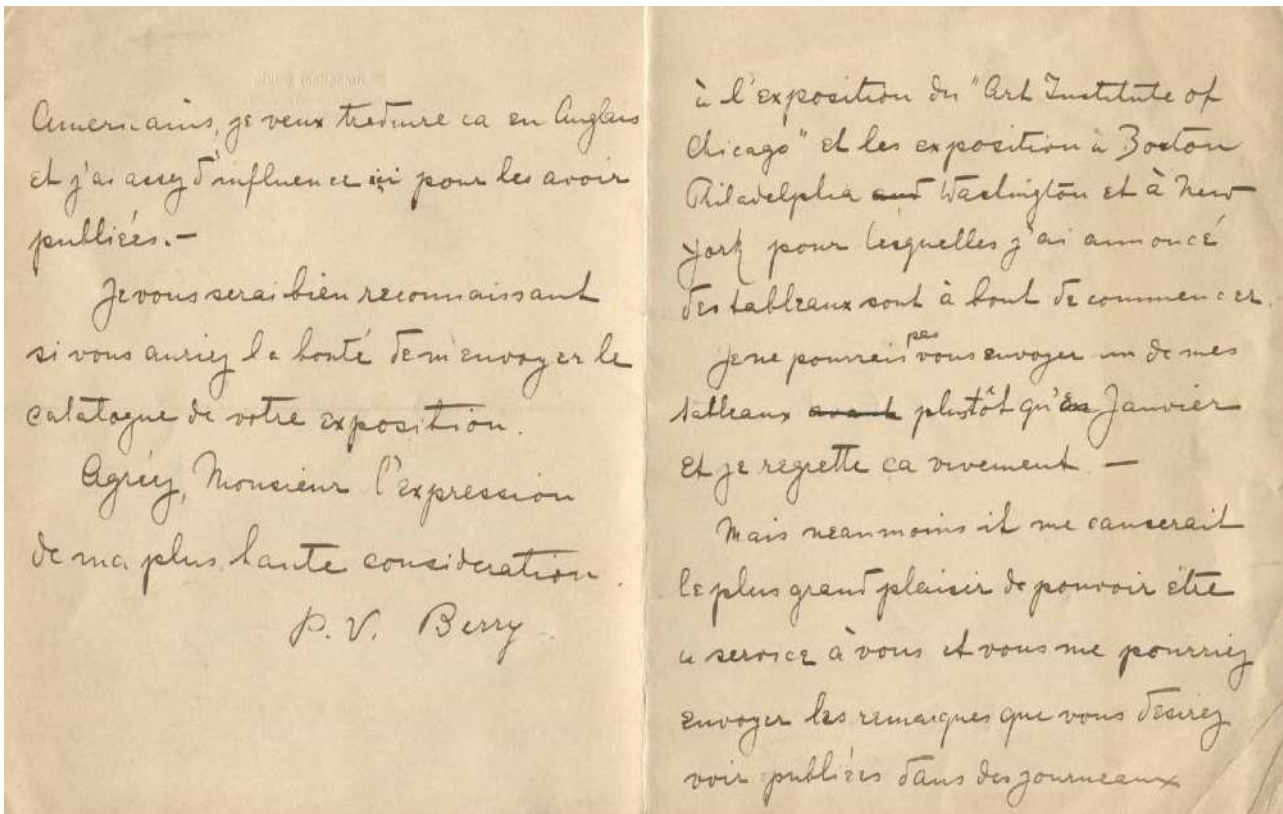 Americains, je veux traduire ca en Anglais
et j'ai assez d'influence ici pour les avoir
publiées.—
Je vous serai bien reconnaissant
si vous auriez la bonté de m'envoyer le
catalogue de votre exposition.
Agréez, Monsieur l'expression
de ma plus haute consideration.
P.V. Berry
à l'exposition du "Art Institute of
Chicago" et les exposition à Boston
Philadelphia and Washington et à New
York pour lesquelles j'ai annoncé
des tableaux sont à bout de commencer.
Je ne pourrais pas vous envoyer un de mes
tableaux avant plustôt qu'en Janvier
et je regrette ca vivement. —
Mais neanmoins it me causerait
le plus grand plaisir de pouvoir être
a service à vous et vous me pourriez
envoyer les remarques que vous desirez
voir publiées dans des journeaux